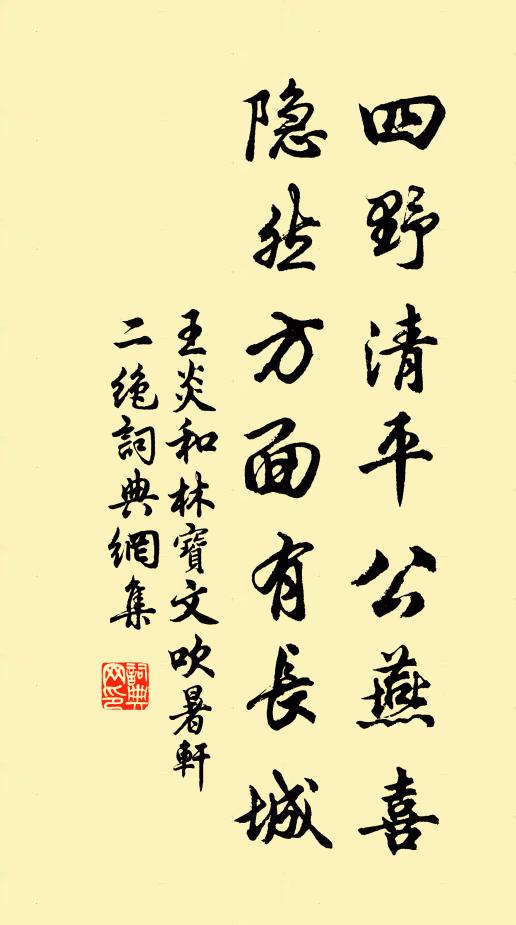 四野清平公燕喜
隐然方面有長城
王炎和林寶文吹暑軒
二绝詞典網集
詞典网印